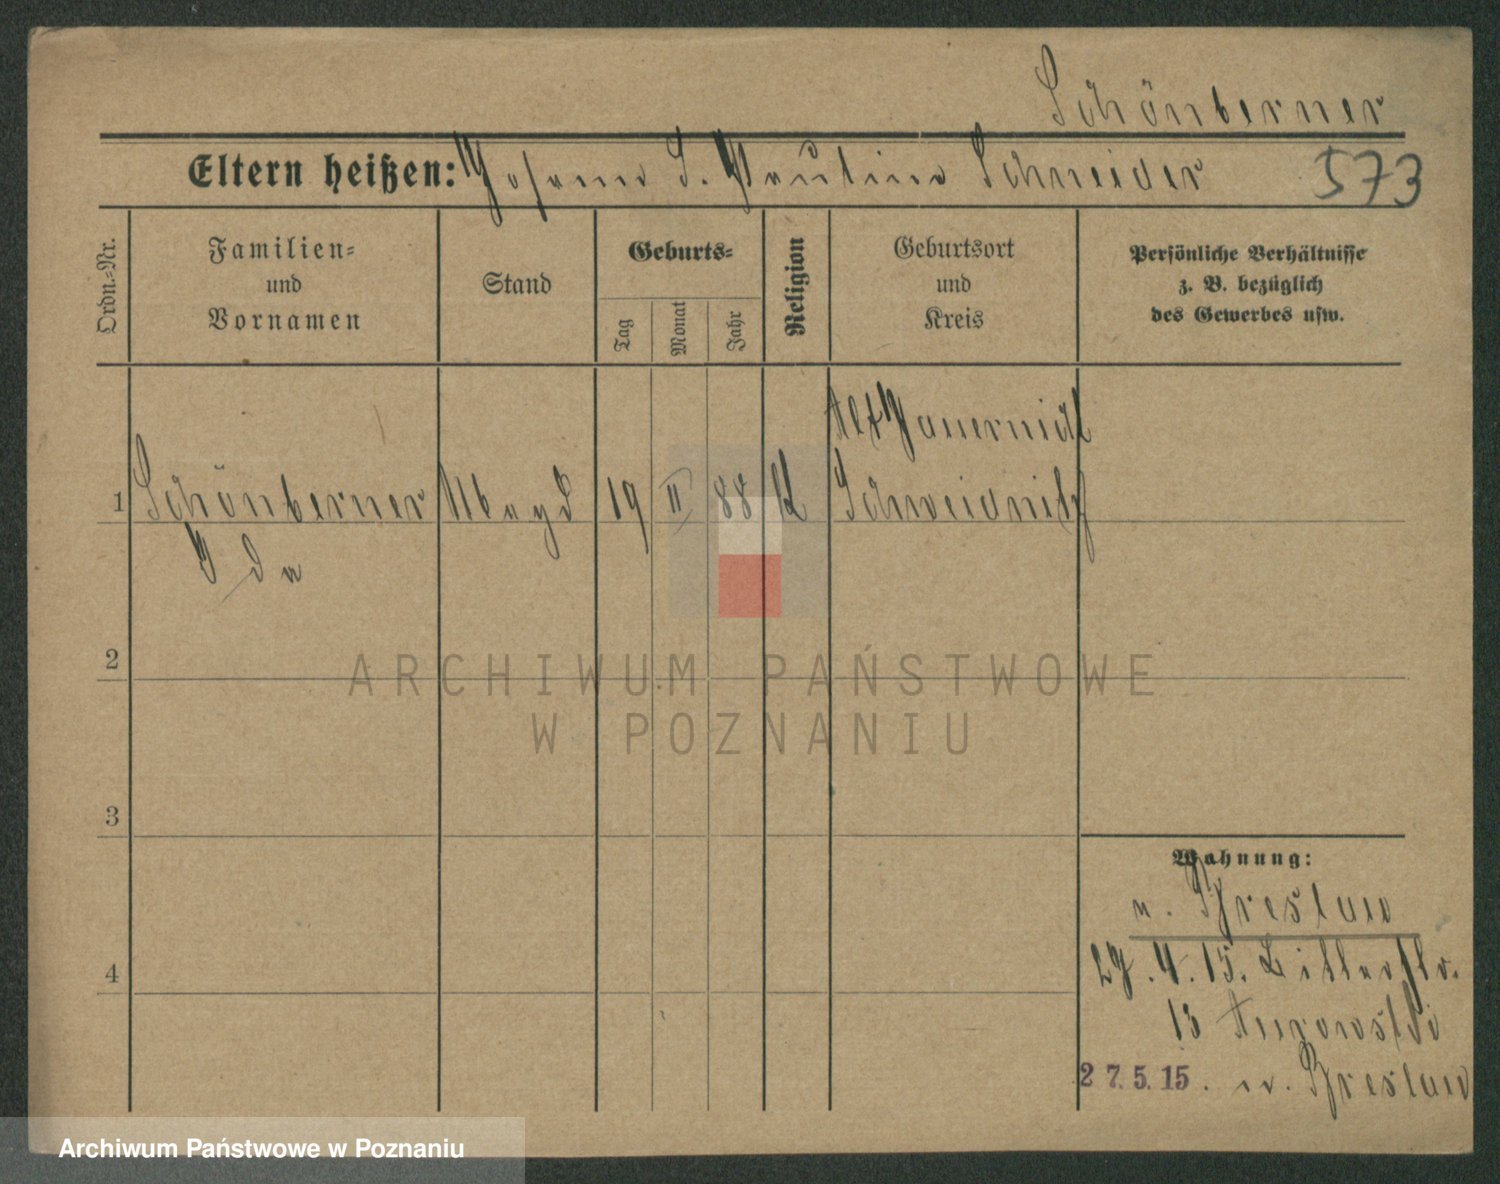 Schönberner
Eltern heißen: Josef u. Pauline Schneider 573
Ordn.=Nr.
Familien=
und
Vornamen
Stand
Geburts=
Tag
Monat
Jahr
Religion
Geburtsort
und
Kreis
Persönliche Verhältnisse
z. B. bezüglich
des Gewerbes usw.
Alt Jauernick
1 Schönberner Magd 19 II 88 K Schweidnitz
Ida
2
ARCHIWUM PAŃSTWOWE
W POZNANIU
3
4
Wohnung:
n. Breslau
27.4.15.
13
27.5.15. n. Breslau
Archiwum Państwowe w Poznaniu